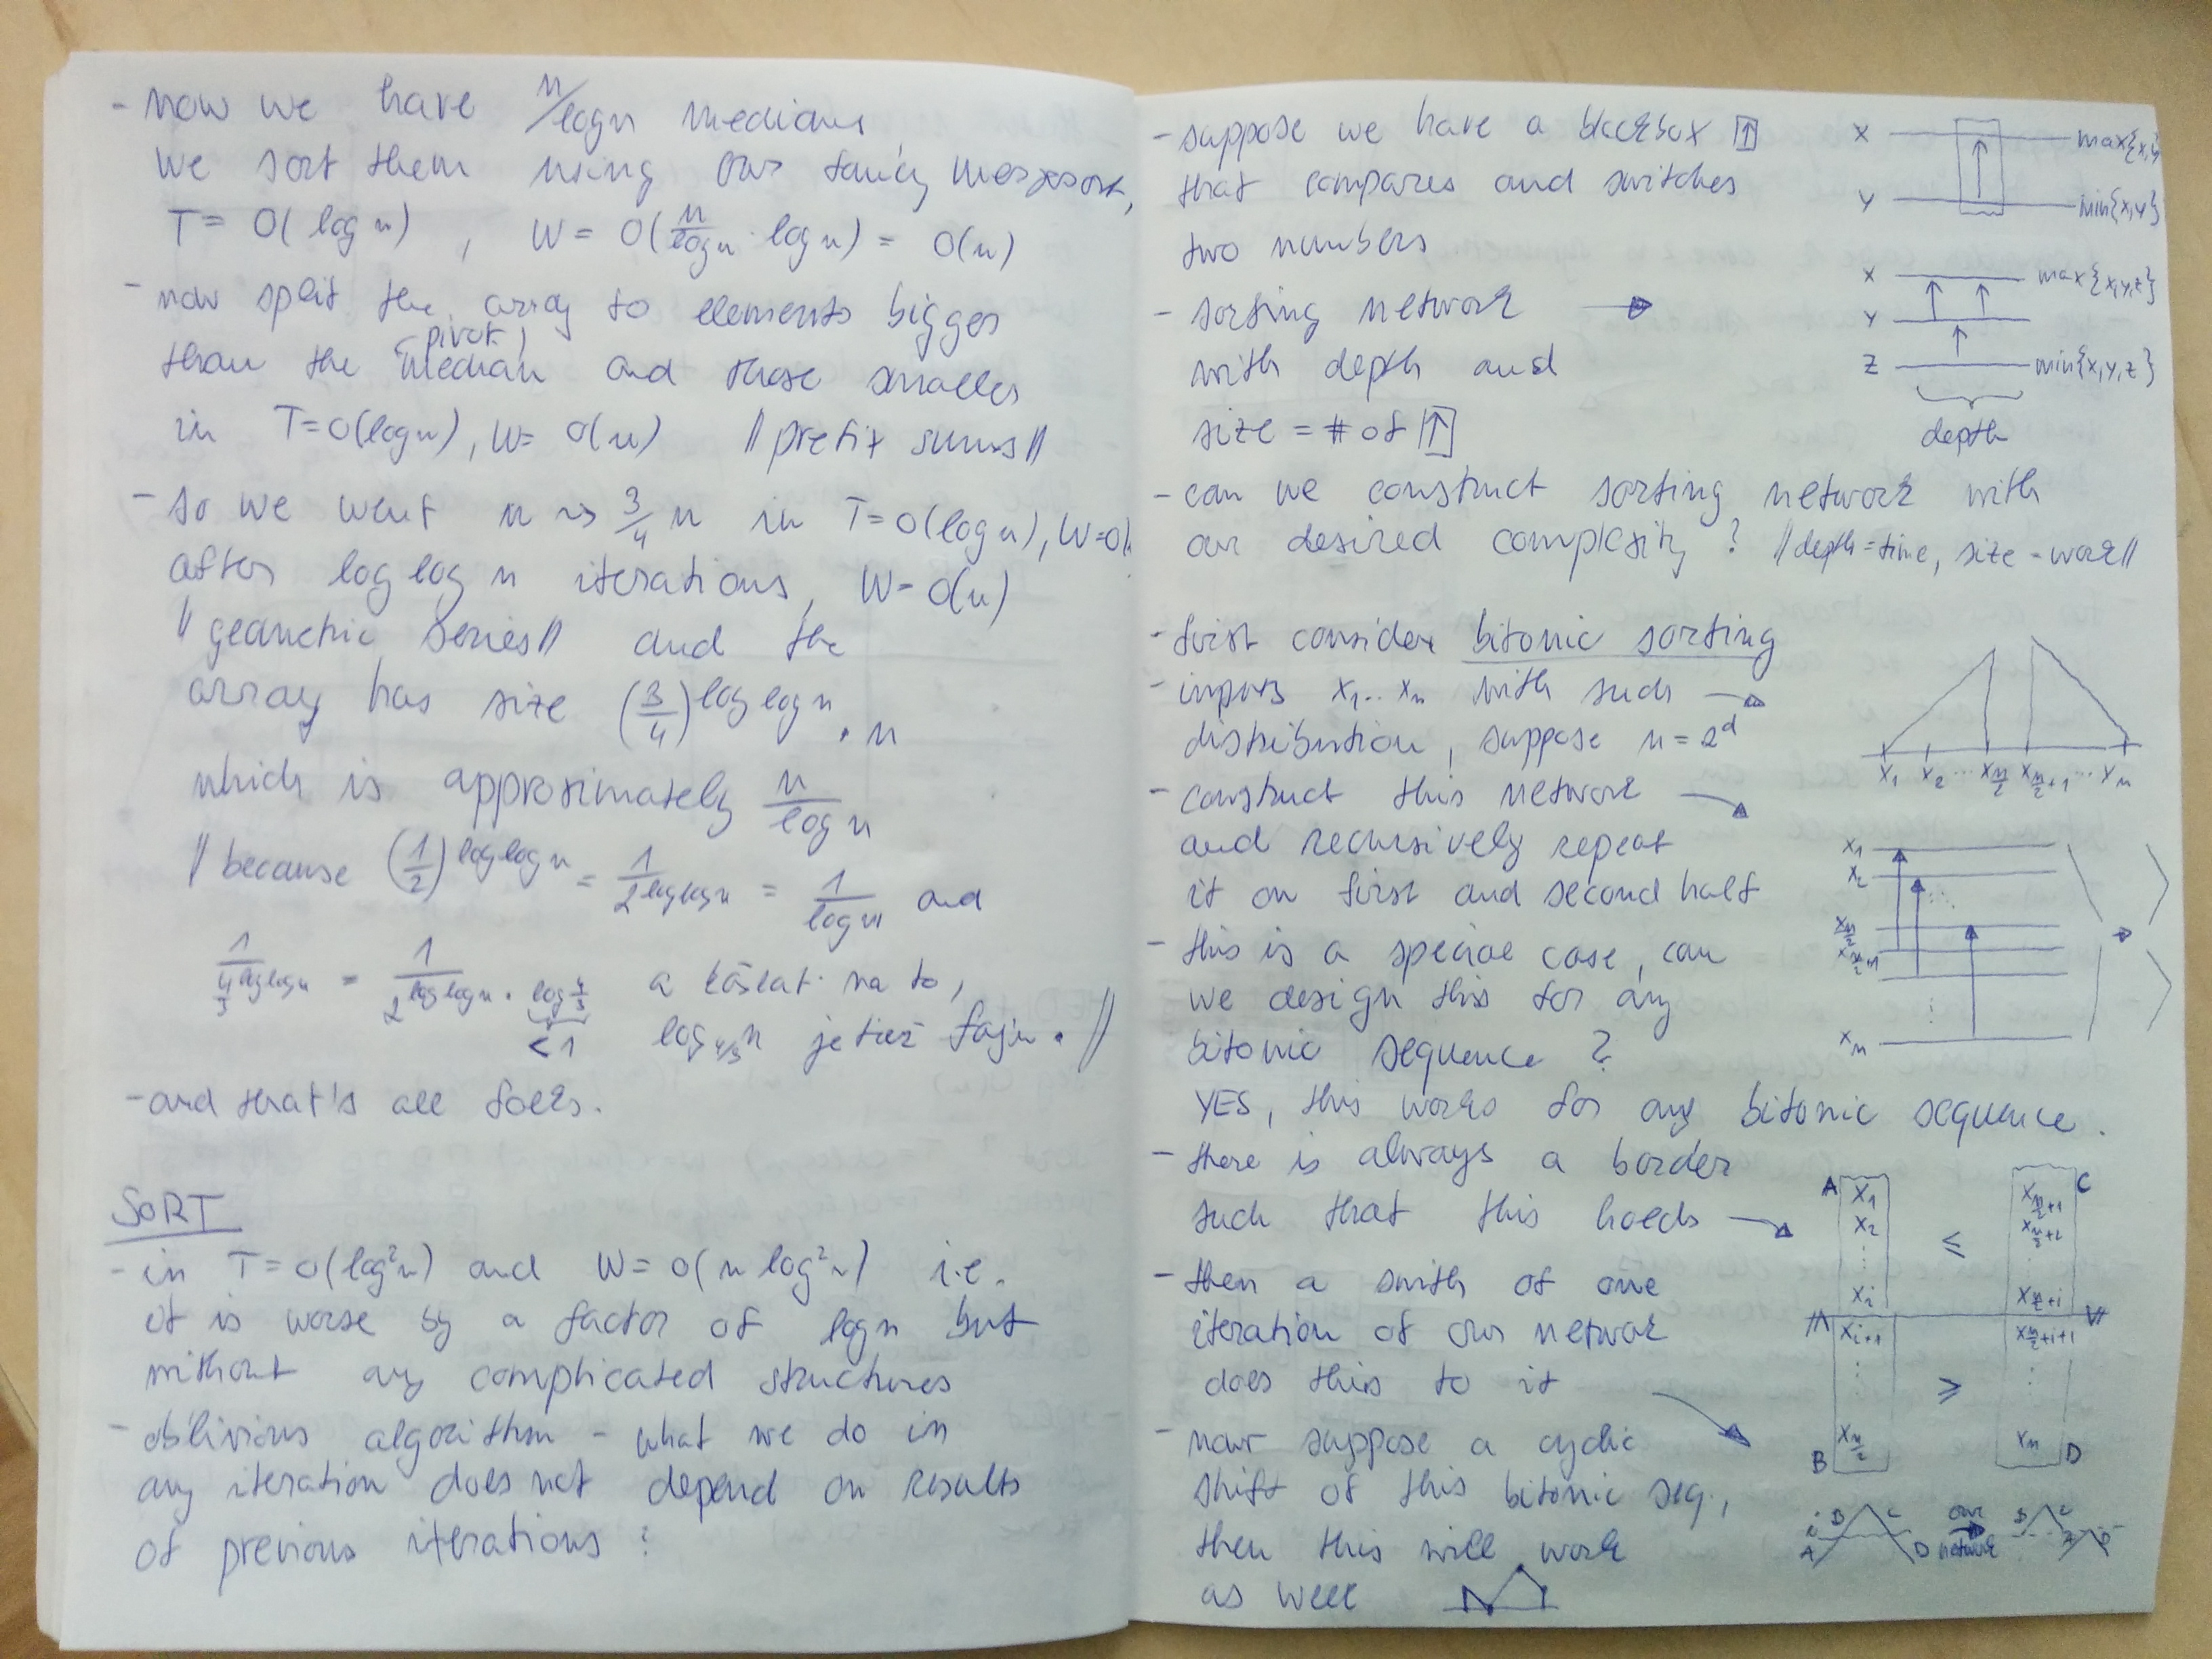 - now we have n/log n medians
we sort them using our fancy mergesort,
T = O(log n), W = O(n/log n · log n) = O(n)
- now split the array to elements bigger
(pivot)
than the median and those smaller
in T=O(log n), W= O(n) // prefix sums //
- so we went n ~> 3/4 n in T=O(log n), W=O(
after log log n iterations, W=O(n)
// geometric series // and the
array has size (3/4)^log log n · n
which is approximately n/log n
// because (1/2)^log log n = 1/2^log log n = 1/log n and
1/(4/3)^log log n = 1/2^log log n · log 4/3 a na to,
< 1 log_4/3 n je tiež fajn. //
- and that's all folks.
SORT
- in T=O(log²n) and W=O(n log²n) i.e.
it is worse by a factor of log n but
without any complicated structures
- oblivious algorithm - what we do in
any iteration does not depend on results
of previous iterations
- suppose we have a blackbox [↑]
that compares and switches
two numbers
x max{x,y}
y min{x,y}
- sorting network →
with depth and
size = # of [↑]
x max{x,y,z}
y
z min{x,y,z}
depth
- can we construct sorting network with
our desired complexity? // depth=time, size=work //
- first consider bitonic sorting
- inputs x₁..xₙ with such →
distribution, suppose n=2^d
x₁ x₂ ... x_n/2 x_n/2+1 ... xₙ
- construct this network →
and recursively repeat
it on first and second half
x₁
x₂
x_n/2
x_n/2+1
xₙ
- this is a special case, can
we design this for any
bitonic sequence?
YES, this works for any bitonic sequence.
- there is always a border
such that this holds →
- then a switch of one
iteration of our network
does this to it →
A x₁ x_n/2+1 C
x₂ ≤ x_n/2+2
⋮ ⋮
x_i x_n/2+i
x_i+1 x_n/2+i+1
⋮ ≥ ⋮
B x_n/2 xₙ D
- now suppose a cyclic
shift of this bitonic seq.,
then this will work
as well
i B C our B C
A D network A D